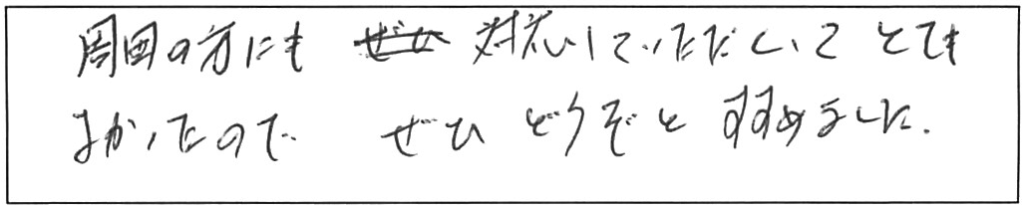 周囲の方にも ぜひ 対応していただくいて とても
よかったので ぜひ どうぞと すすめました.